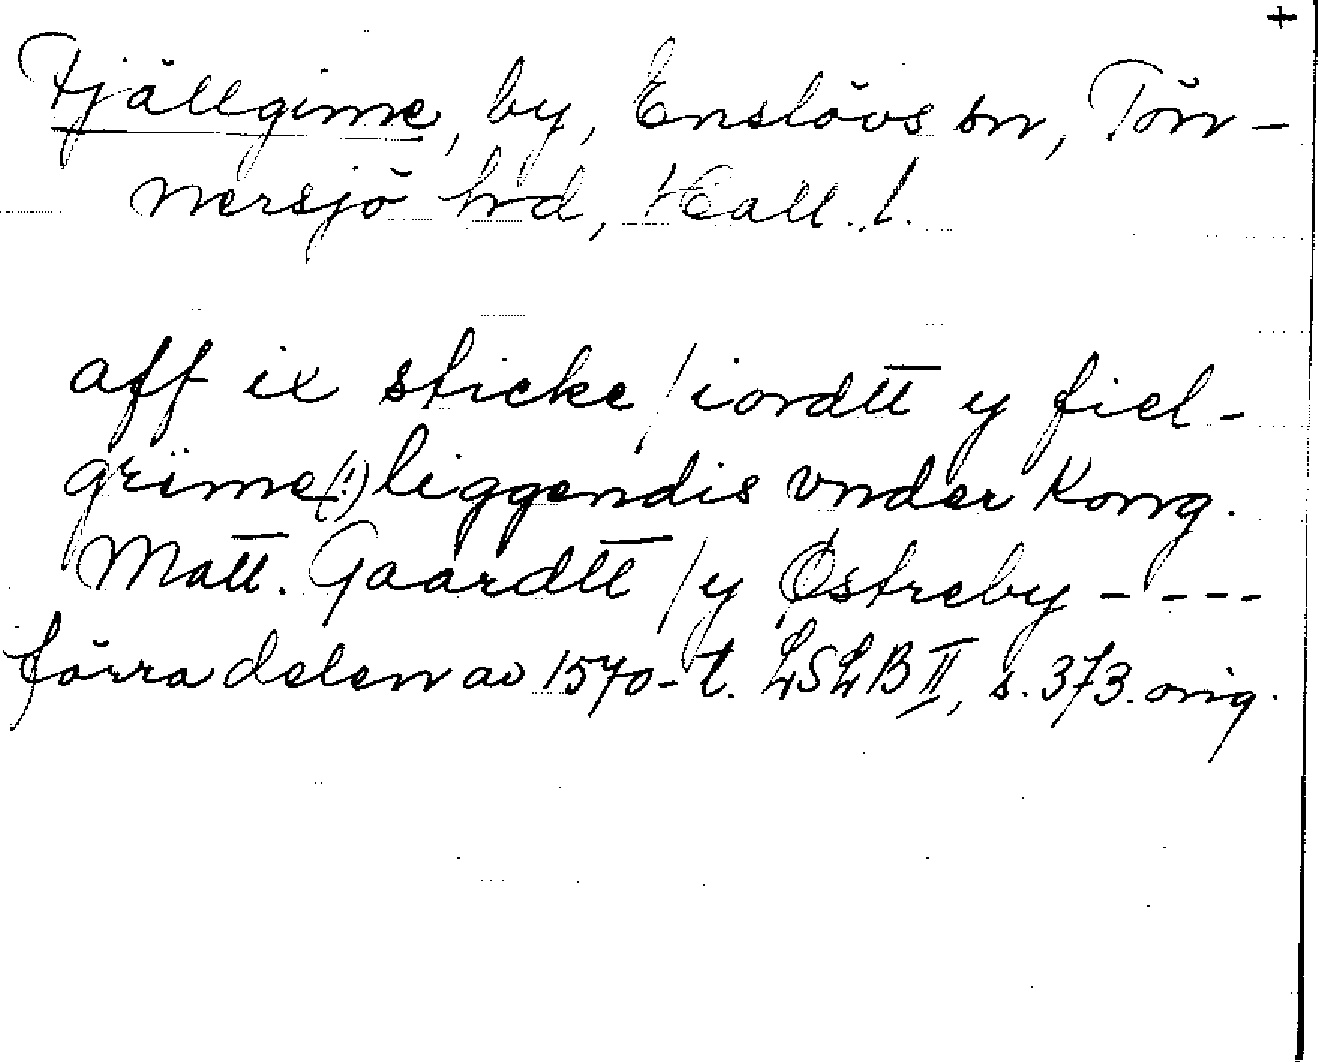 +
Fjällgime, by, Enslövs sn, Tön-
nersjö hrd, Hall. l.
aff ix sticke / iordtt y fiel-
grime(!) liggendis vnder Kong.
Matt. Gaardtt / y Østreby ----
förra delen av 1570-t. LSLB II, s. 373. orig.